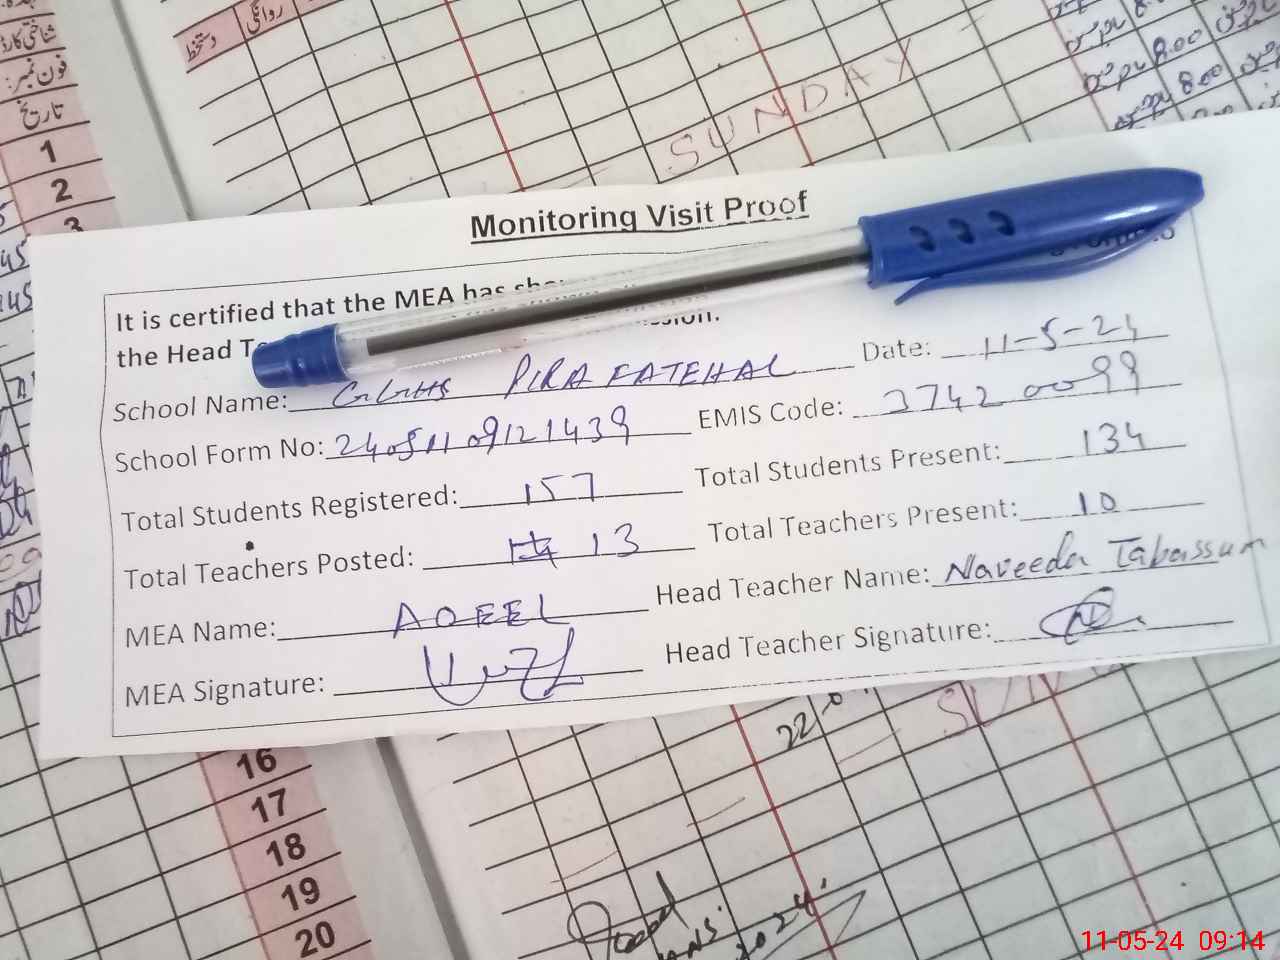 دستخط
روانگی
شناختی کارڈ
فون نمبر:
تاریخ
1
2
3
SUNDAY
8.00
8.00
Monitoring Visit Proof
It is certified that the MEA has
the Head
School Name: GGHS PIRA FATEHAL Date: 11-5-24
School Form No: 24051109121439 EMIS Code: 37420099
Total Students Registered: 157 Total Students Present: 134
Total Teachers Posted: 13 Total Teachers Present: 10
MEA Name: AQEEL Head Teacher Name: Naveeda Tabassum
MEA Signature: Head Teacher Signature:
16
17
18
19
20
11-05-24 09:14